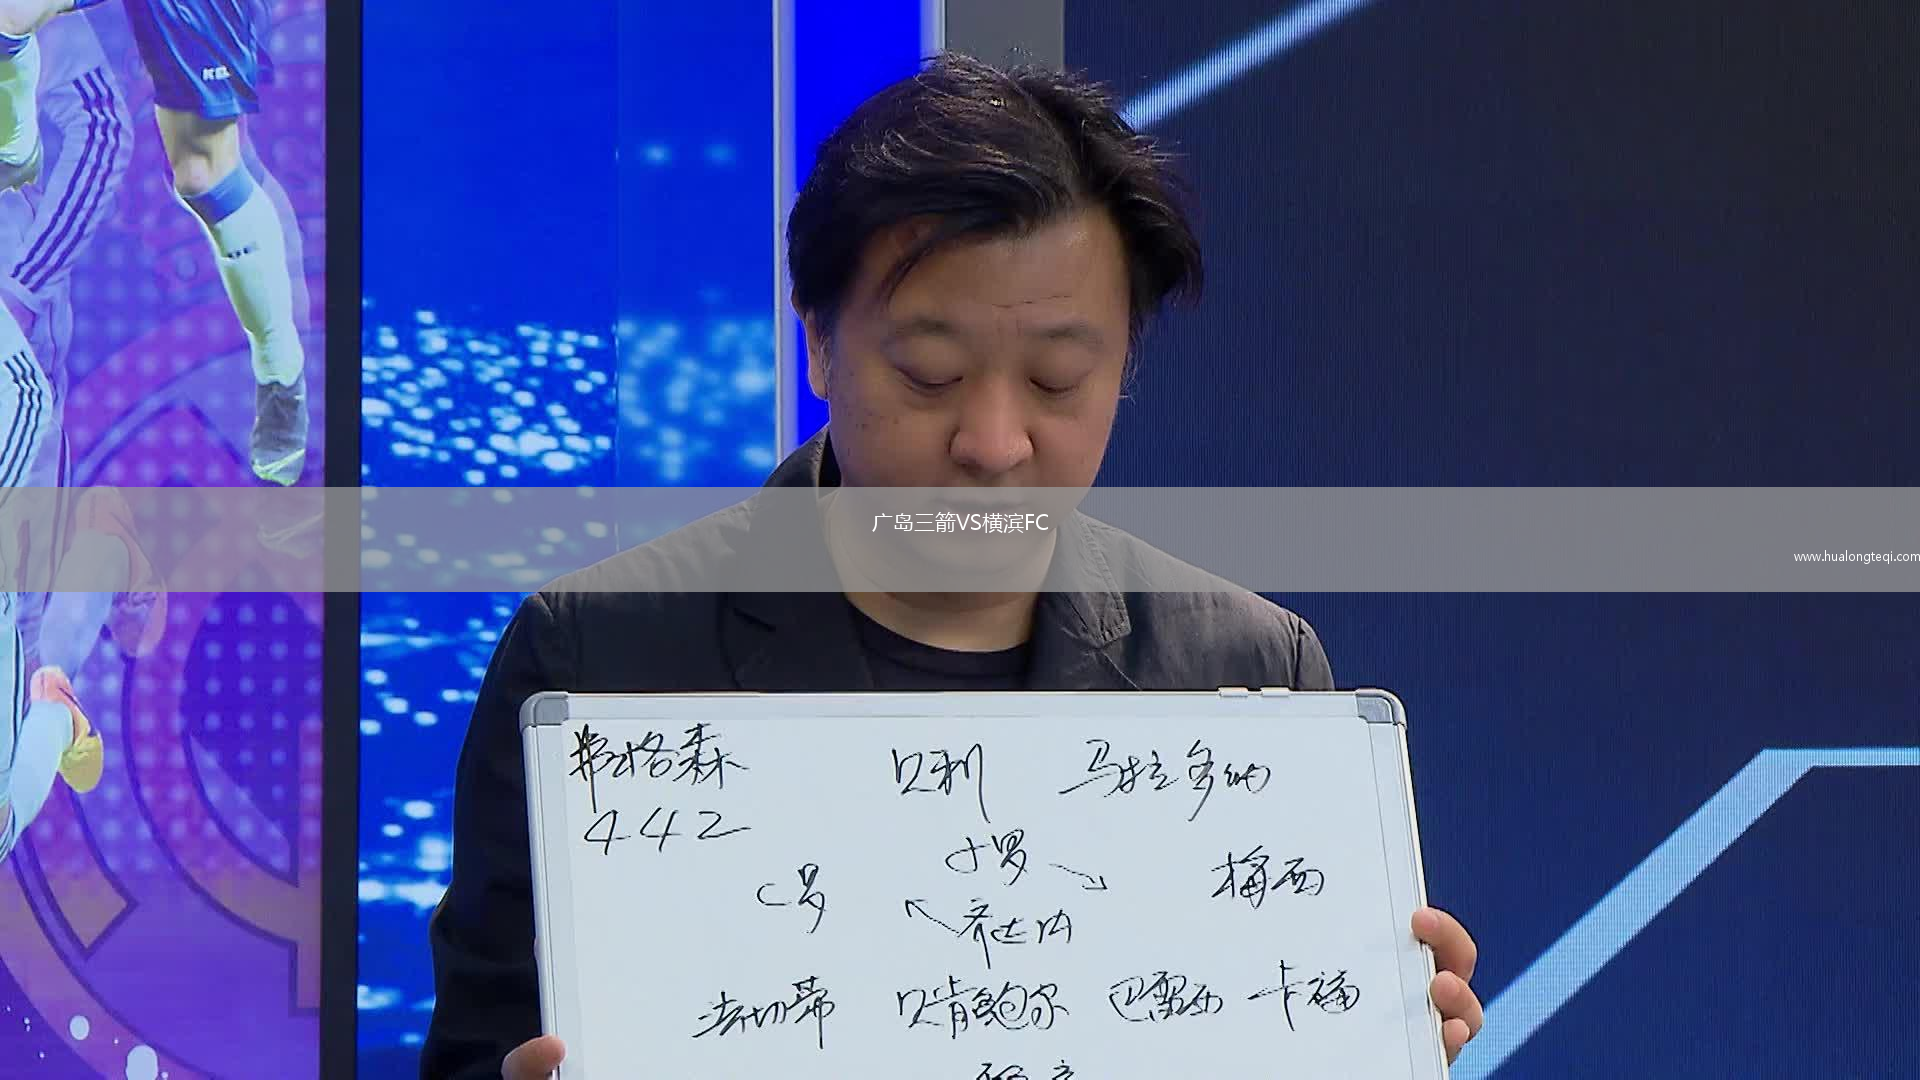 KELME
广岛三箭VS横滨FC
www.hualongteqi.com
弗格森 贝利 马拉多纳
442
小罗
C罗 梅西
齐达内
法切蒂 贝肯鲍尔 巴雷西 卡福